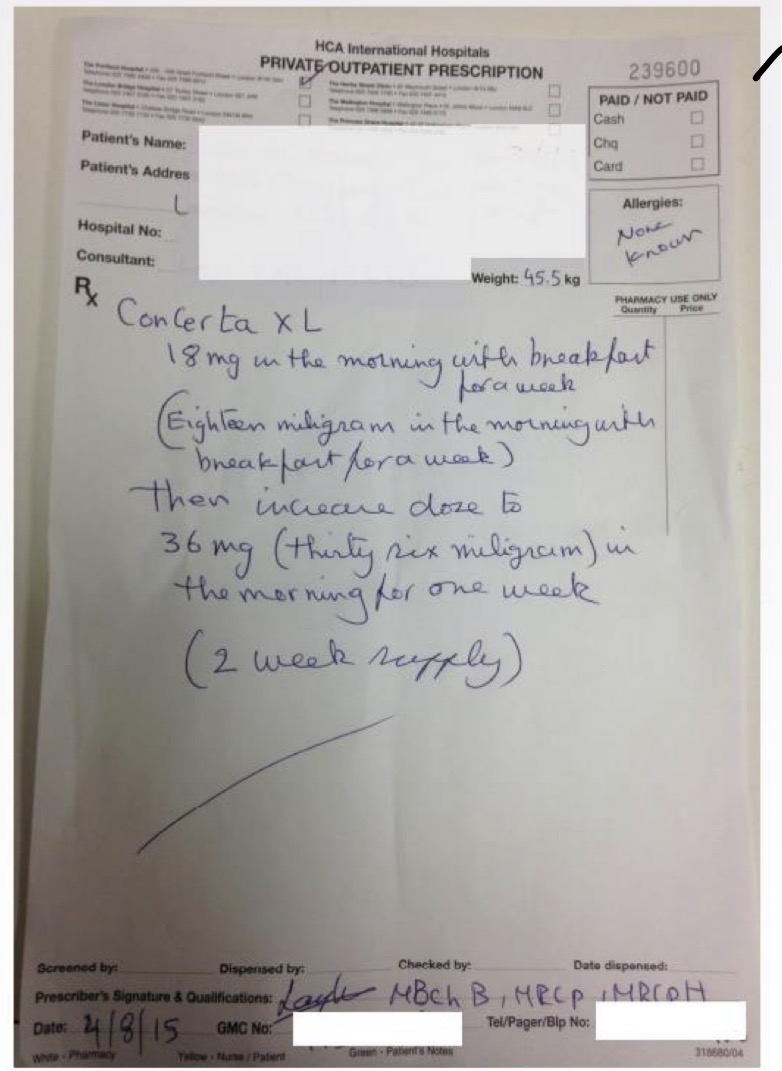 HCA International Hospitals
PRIVATE OUTPATIENT PRESCRIPTION
239600
PAID / NOT PAID
Cash
Chq
Card
Patient's Name:
Patient's Addres
L
Hospital No:
Consultant:
Allergies:
None
known
Weight: 45.5 kg
PHARMACY USE ONLY
Quantity Price
Rx
Concerta XL
18mg in the morning with breakfast
for a week
(Eighteen miligram in the morning with
breakfast for a week)
Then increase doze to
36 mg (thirty six miligram) in
the morning for one week
(2 week supply)
Screened by: Dispensed by: Checked by: Date dispensed:
Prescriber's Signature & Qualifications: MBChB, MRCP, MRCPH
Date: 4/8/15 GMC No: Tel/Pager/Blp No:
White - Pharmacy Yellow - Nurse / Patient Green - Patient's Notes 318680/04